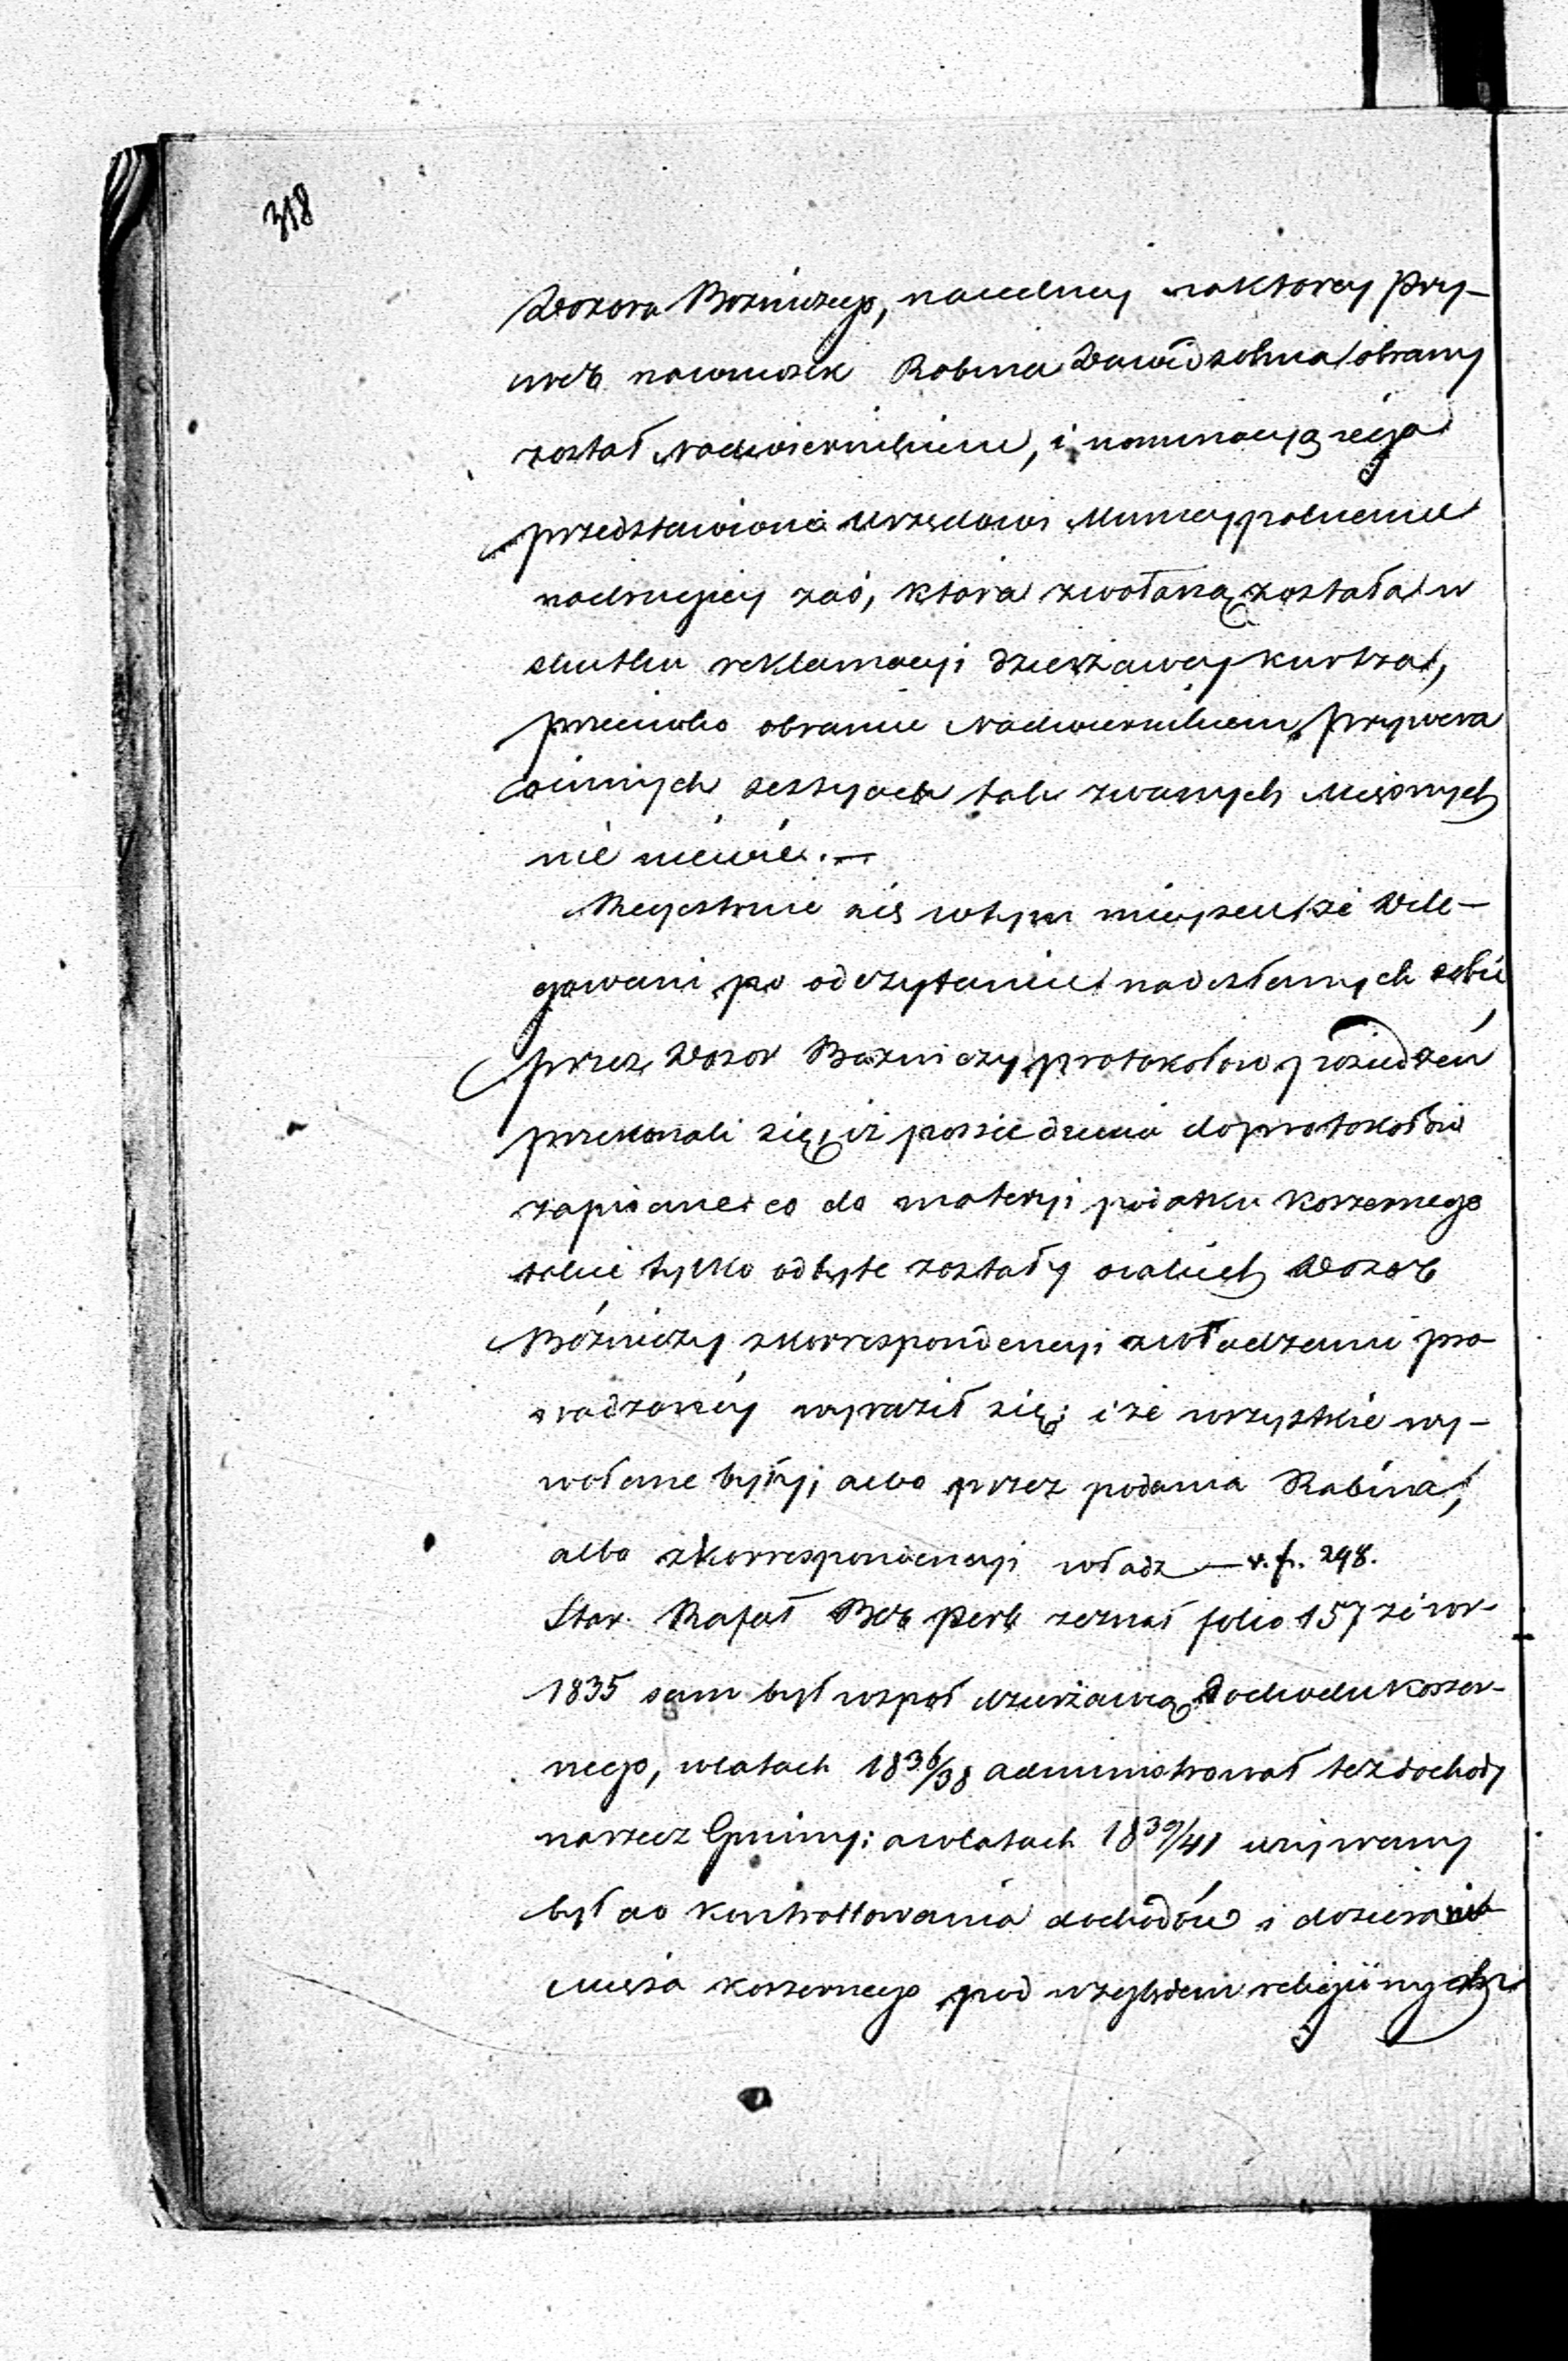 318
Dozoru Bożniczego, na jedney na ktorey Pry-
wer na wniosek Rabina Dawidsohna obrany
został Nadwiernikiem, i nominacya jego
przedstawiona Urzędowi Municypalnemu
na drugiey zaś, która zwołaną została w
skutku reklamacyi dzierżawcy Kurtza,
przeciwko obraniu Nadwiernikiem Prywera
o innych sessyach tak zwanych Mięsnych
nic niewie. —
Rejestruie się w tym mieyscu że Dele-
gowani po odczytaniu nadesłanych sobie
przez Dozor Bożniczy protokołow posiedzeń
przekonali się, iż possiedzenia do protokołów
zapisane co do materyi podatku koszernego
takie tylko odbyte zostały o jakich Dozor
Bóżniczy z korrespondencyi z władzami pro
wadzoney wyraził się; i że wszystkie wy-
wołane były, albo przez podania Rabina,
albo z korrespondencyi władz — v. f. 298.
Star. Rafał Ber Perl zeznał folio 157 że w r.
1835 sam był współ dzierżawcą dochodu koszer-
nego, w latach 1836/38 administrował też dochody
na rzecz Gminy; a w latach 1839/41 używany
był do kontrollowania dochodów i dozierania
Mięsa koszernego pod względem religijnych